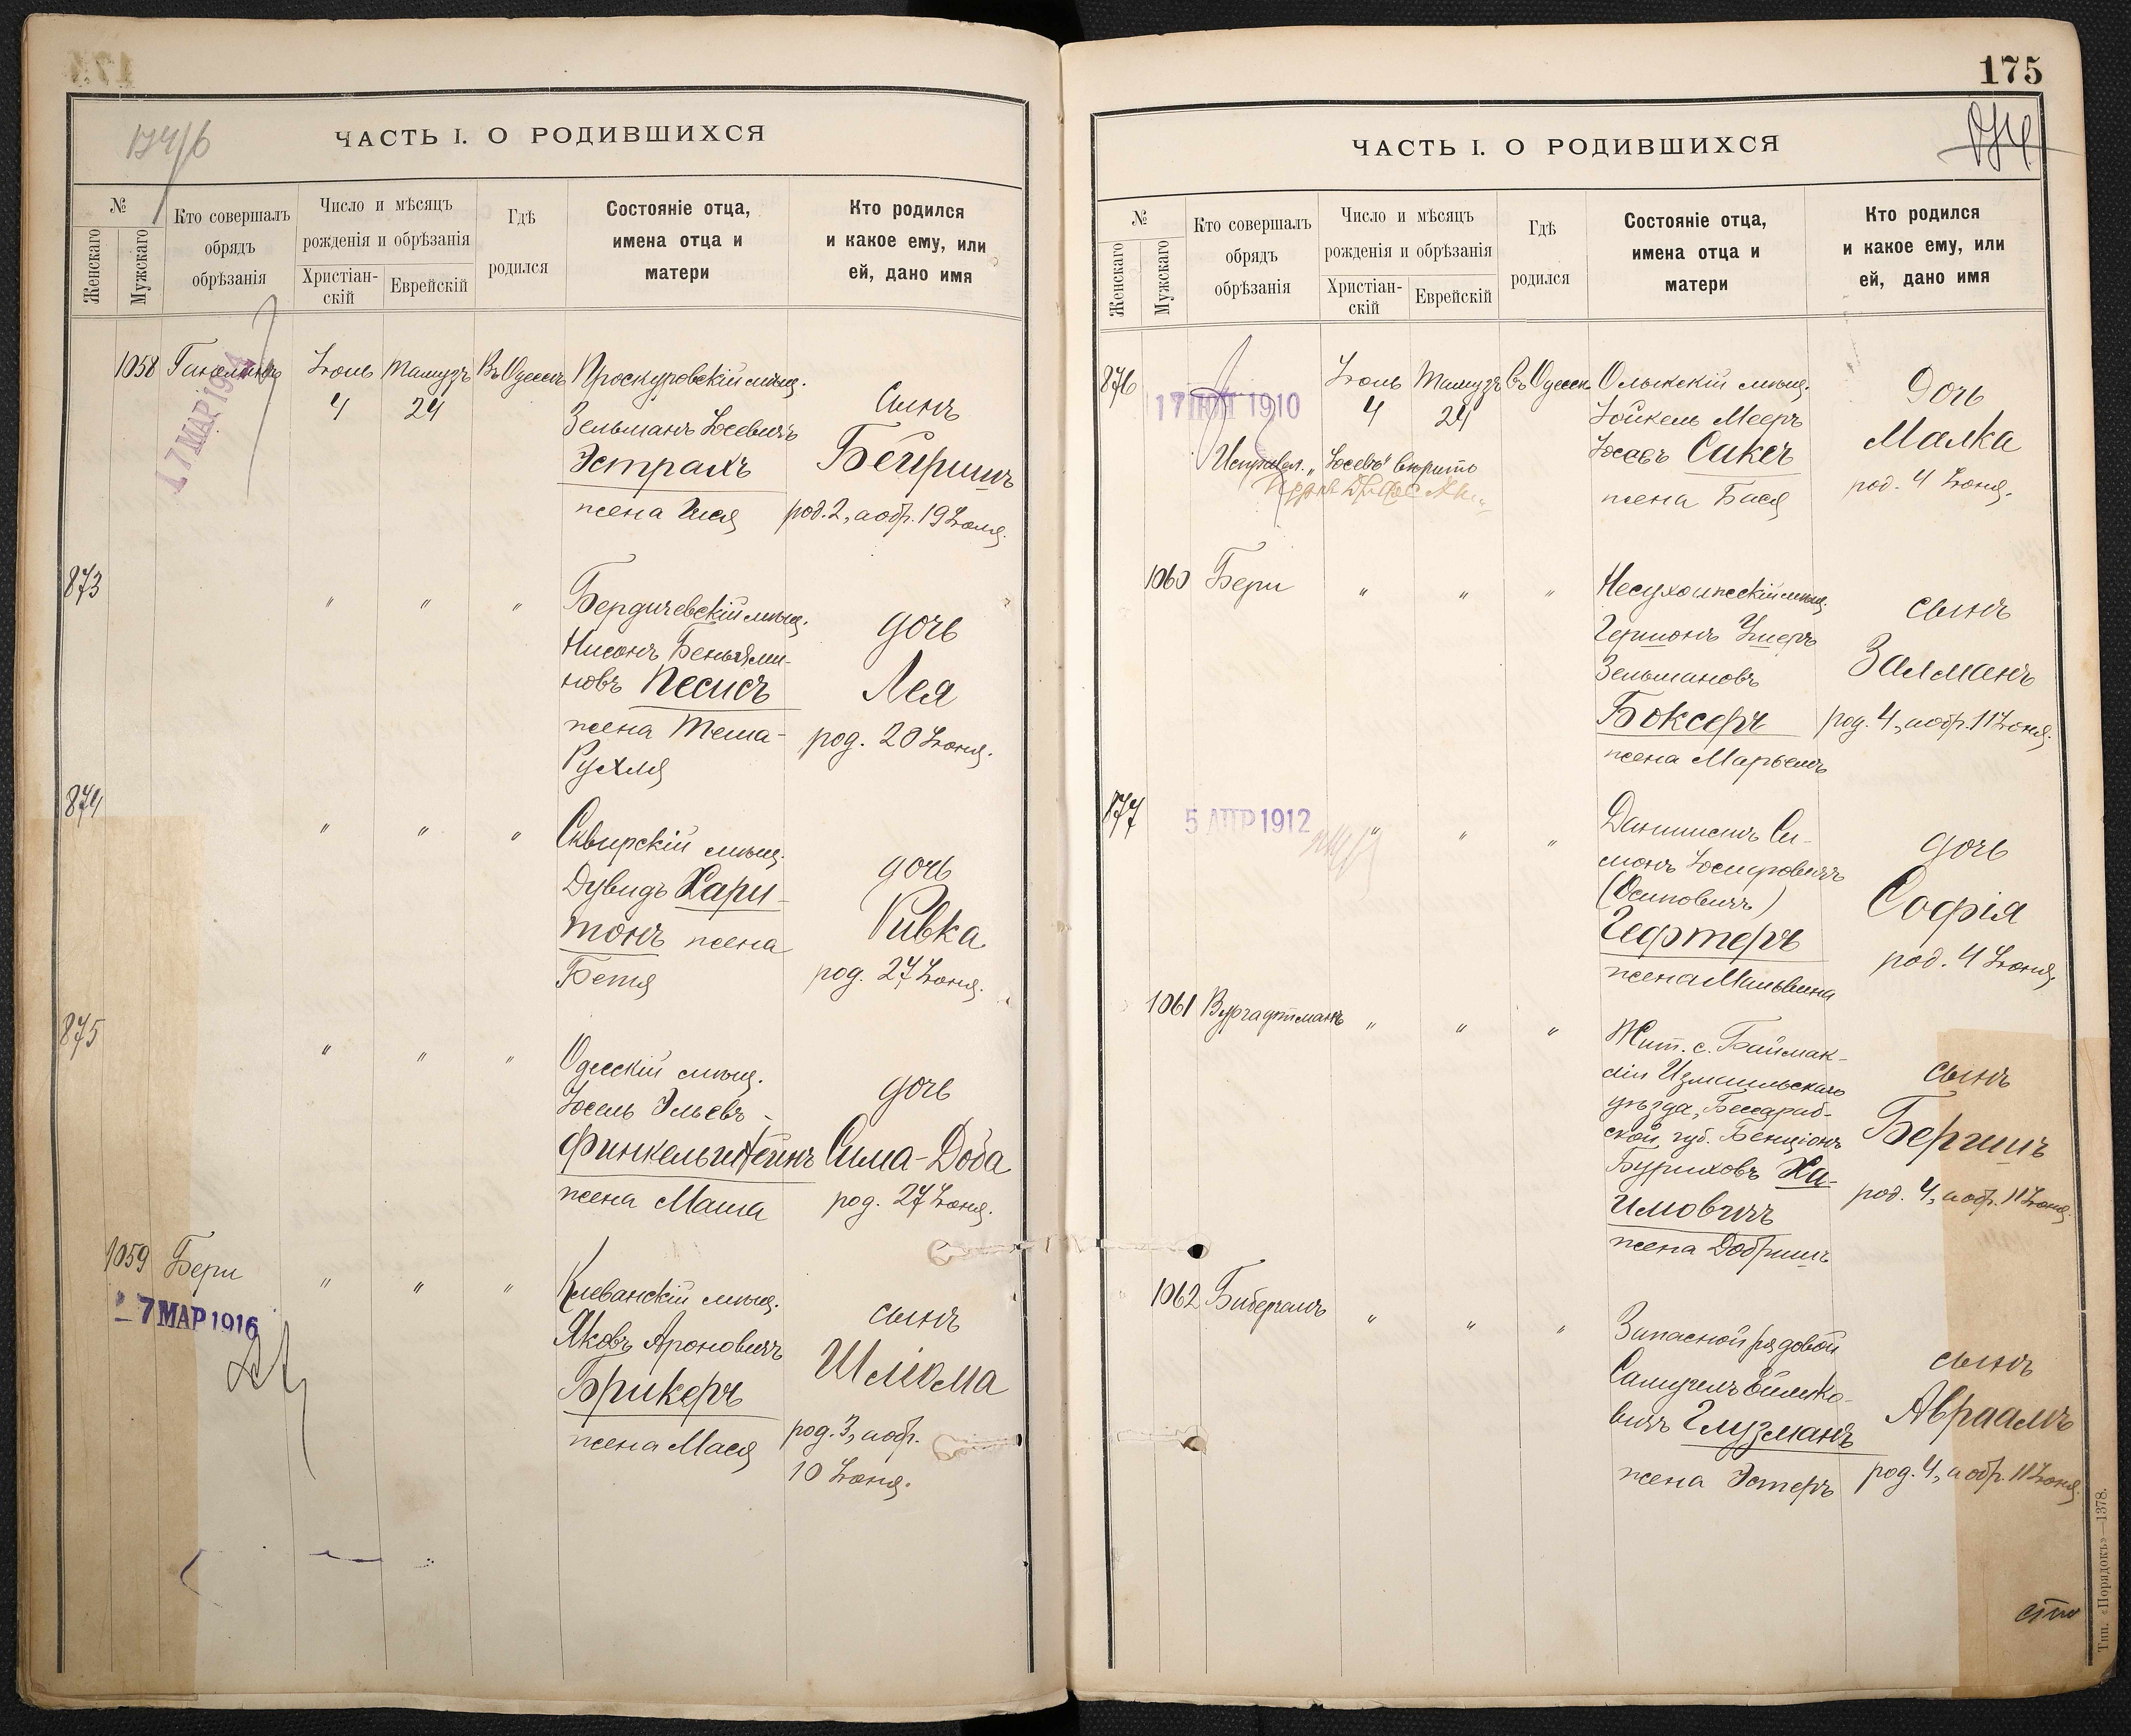 174/б
ЧАСТЬ I. О РОДИВШИХСЯ
№
Женскаго
Мужскаго
Кто совершалъ
обрядъ
обрѣзанія
Число и мѣсяцъ
рожденія и обрѣзанія
Христіан-
скій
Еврейскій
Гдѣ
родился
Состояніе отца,
имена отца и
матери
Кто родился
и какое ему, или
ей, дано имя
1058
17 МАР 1914
Іюль
4
Тамузъ
24
Въ Одессѣ
Проскуровскій мѣщ.
Зельманъ Іосевичъ
Эстрахъ
жена
Сынъ
Бейришъ
род. 2, а обр. 19 Іюня.
873
" " "
Бердичевскій мѣщ.
Нисонъ Беньями-
новъ Песисъ
жена Тема-
Рухля
дочь
Лея
род. 20 Іюня.
874
" " "
Сквирскій мѣщ.
Дувидъ Хари-
тонъ жена
Бетя
дочь
Ривка
род. 27 Іюня.
875
" " "
Одесскій мѣщ.
Іосель Эльевъ
Финкельштейнъ
жена Маша
дочь
Сима-Доба
род. 27 Іюня.
1059
Бери
7 МАР 1916
" " "
Клеванскій мѣщ.
Яковъ Ароновичъ
Брикеръ
жена Мася
сынъ
Шліома
род. 3, а обр.
10 Іюня.
175
174
ЧАСТЬ I. О РОДИВШИХСЯ
№
Женскаго
Мужскаго
Кто совершалъ
обрядъ
обрѣзанія
Число и мѣсяцъ
рожденія и обрѣзанія
Христіан-
скій
Еврейскій
Гдѣ
родился
Состояніе отца,
имена отца и
матери
Кто родился
и какое ему, или
ей, дано имя
876
1910
Іюль
4
Тамузъ
24
въ Одессѣ
Олыкскій мѣщ.
Іойкель Мееръ
Сикеъ
жена Бася
дочь
Малка
род. 4 Іюня.
1060
Бери
" " "
мѣщ.
Гершонъ
Зельмановъ
Боксеръ
жена Марьемъ
сынъ
Залманъ
род. 4, а обр. 11 Іюня.
877
5 АПР 1912
" " "
Дантистъ Си-
монъ Іосифовичъ
(Осиповичъ)
Гефтеръ
жена Мальвина
дочь
Софія
род. 4 Іюня.
1061
Вургафтманъ
" " "
Жит. с. Баймак-
ліи Измаильскаго
уѣзда, Бессараб-
ской губ. Бенціонъ
Буриховъ Ха-
имовичъ
жена Добришъ
сынъ
Бергишъ
род. 4, а обр. 11 Іюня.
1062
Бибергалъ
" " "
Запасной рядовой
Самуилъ
вичъ Глузманъ
жена Эстеръ
сынъ
Авраамъ
род. 4, а обр. 11 Іюня.
Тип. «Порядокъ»—1378.